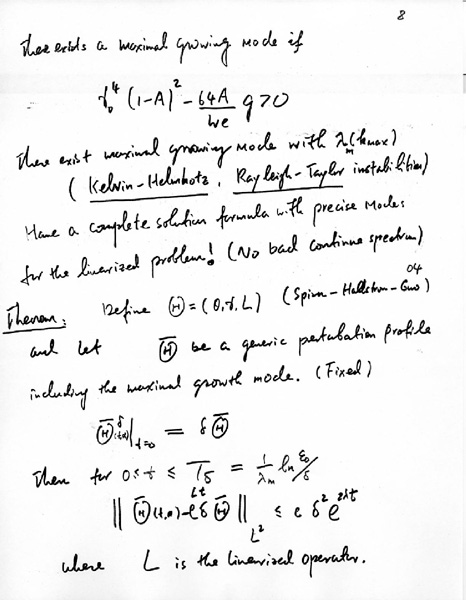 8
There exists a maximal growing mode if
γ₀⁴ (1-A)² - 64A/We g > 0
There exist maximal growing mode with λₘ(kmax)
( Kelvin-Helmhotz, Rayleigh-Taylor instabilities)
Have a complete solution formula with precise modes
for the linearized problem! (No bad continue spectrum)
Theorem: Define Ⓗ = (θ, γ, L) (Spirn-Hallstrom-Guo) 04
and let Ⓗ̄ be a generic perturbation profile
including the maximal growth mode. (Fixed)
Ⓗ̄^δ(t,x)|_{t=0} = δ Ⓗ̄
Then for 0 ≤ t ≤ T_δ = 1/λₘ ln ε₀/δ
|| Ⓗ̄(t,0) - e^{Lt} δ Ⓗ̄ ||_{L²} ≤ c δ² e^{2λt}
where L is the linearized operator.